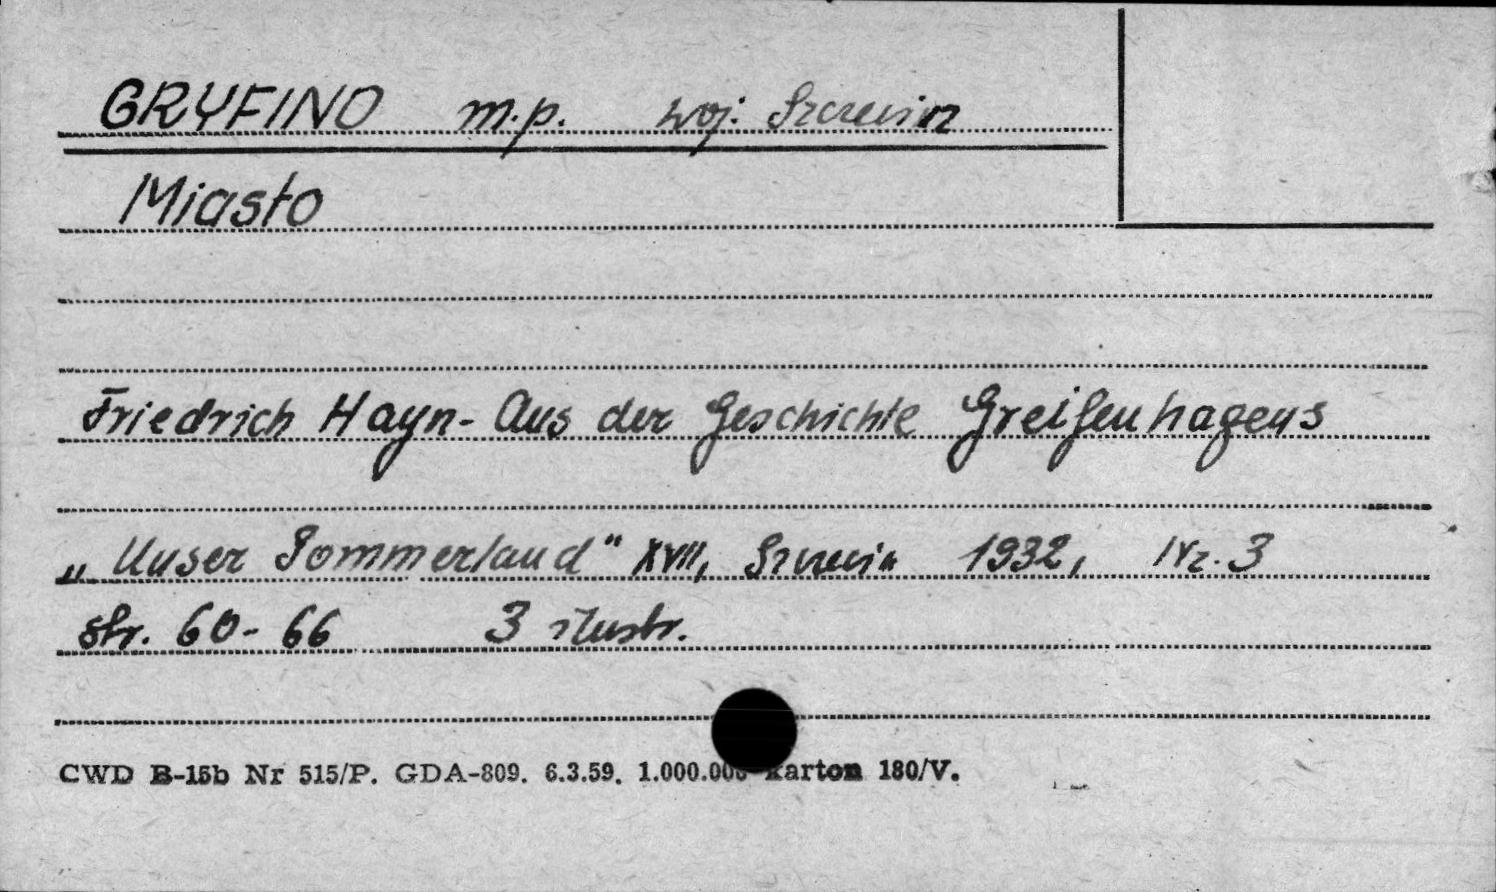 GRYFINO m.p. woj. Szczecin
Miasto
Friedrich Hayn - Aus der Geschichte Greifenhagens
„Unser Pommerland" XVII, Szczecin 1932, Nr. 3
str. 60-66 3 ilustr.
CWD B-15b Nr 515/P. GDA-809. 6.3.59. 1.000.000 karton 180/V.